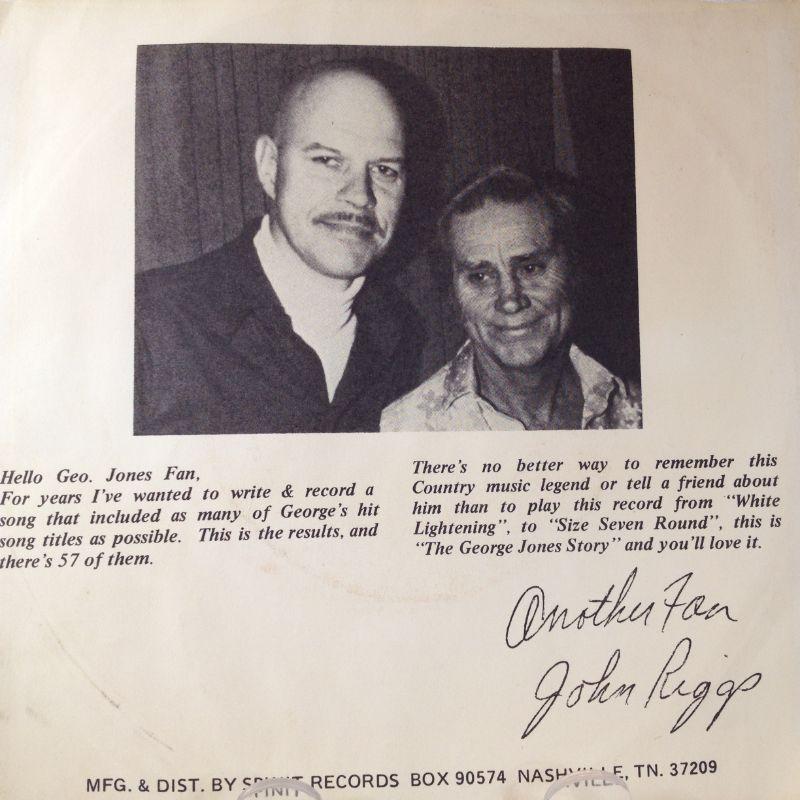 Hello Geo. Jones Fan,
For years I've wanted to write & record a
song that included as many of George's hit
song titles as possible. This is the results, and
there's 57 of them.
There's no better way to remember this
Country music legend or tell a friend about
him than to play this record from "White
Lightening", to "Size Seven Round", this is
"The George Jones Story" and you'll love it.
Another Fan
John Riggs
MFG. & DIST. BY SPIRIT RECORDS BOX 90574 NASHVILLE, TN. 37209